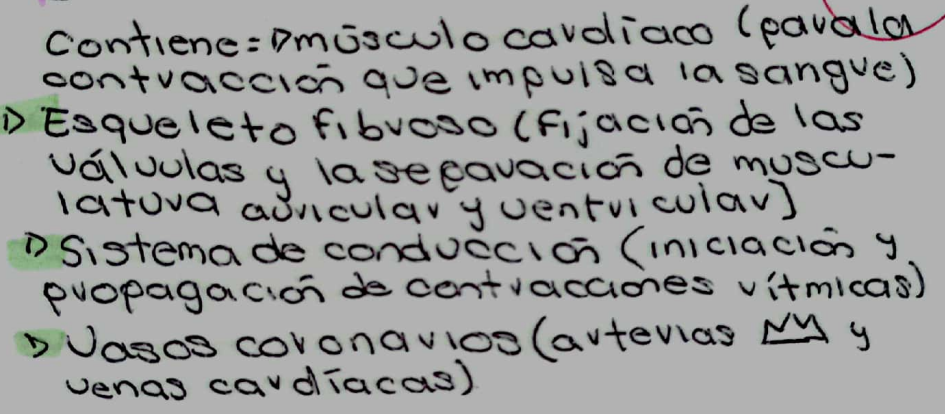 Contiene: ▷ músculo cardíaco (para la
contracción que impulsa la sangre)
▷ Esqueleto fibroso (fijación de las
válvulas y la separación de muscu-
latura auricular y ventricular)
▷ Sistema de conducción (iniciación y
propagación de contracciones rítmicas)
▷ Vasos coronarios (arterias y
venas cardíacas)